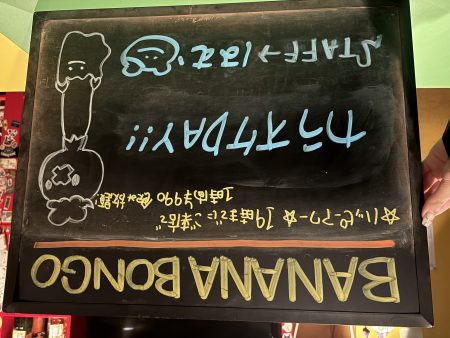 BANANA BONGO
☆ハッピーアワー☆ 19時までにご来店で
1時間¥990 飲み放題
カラオケDAY!!
STAFF→はむ